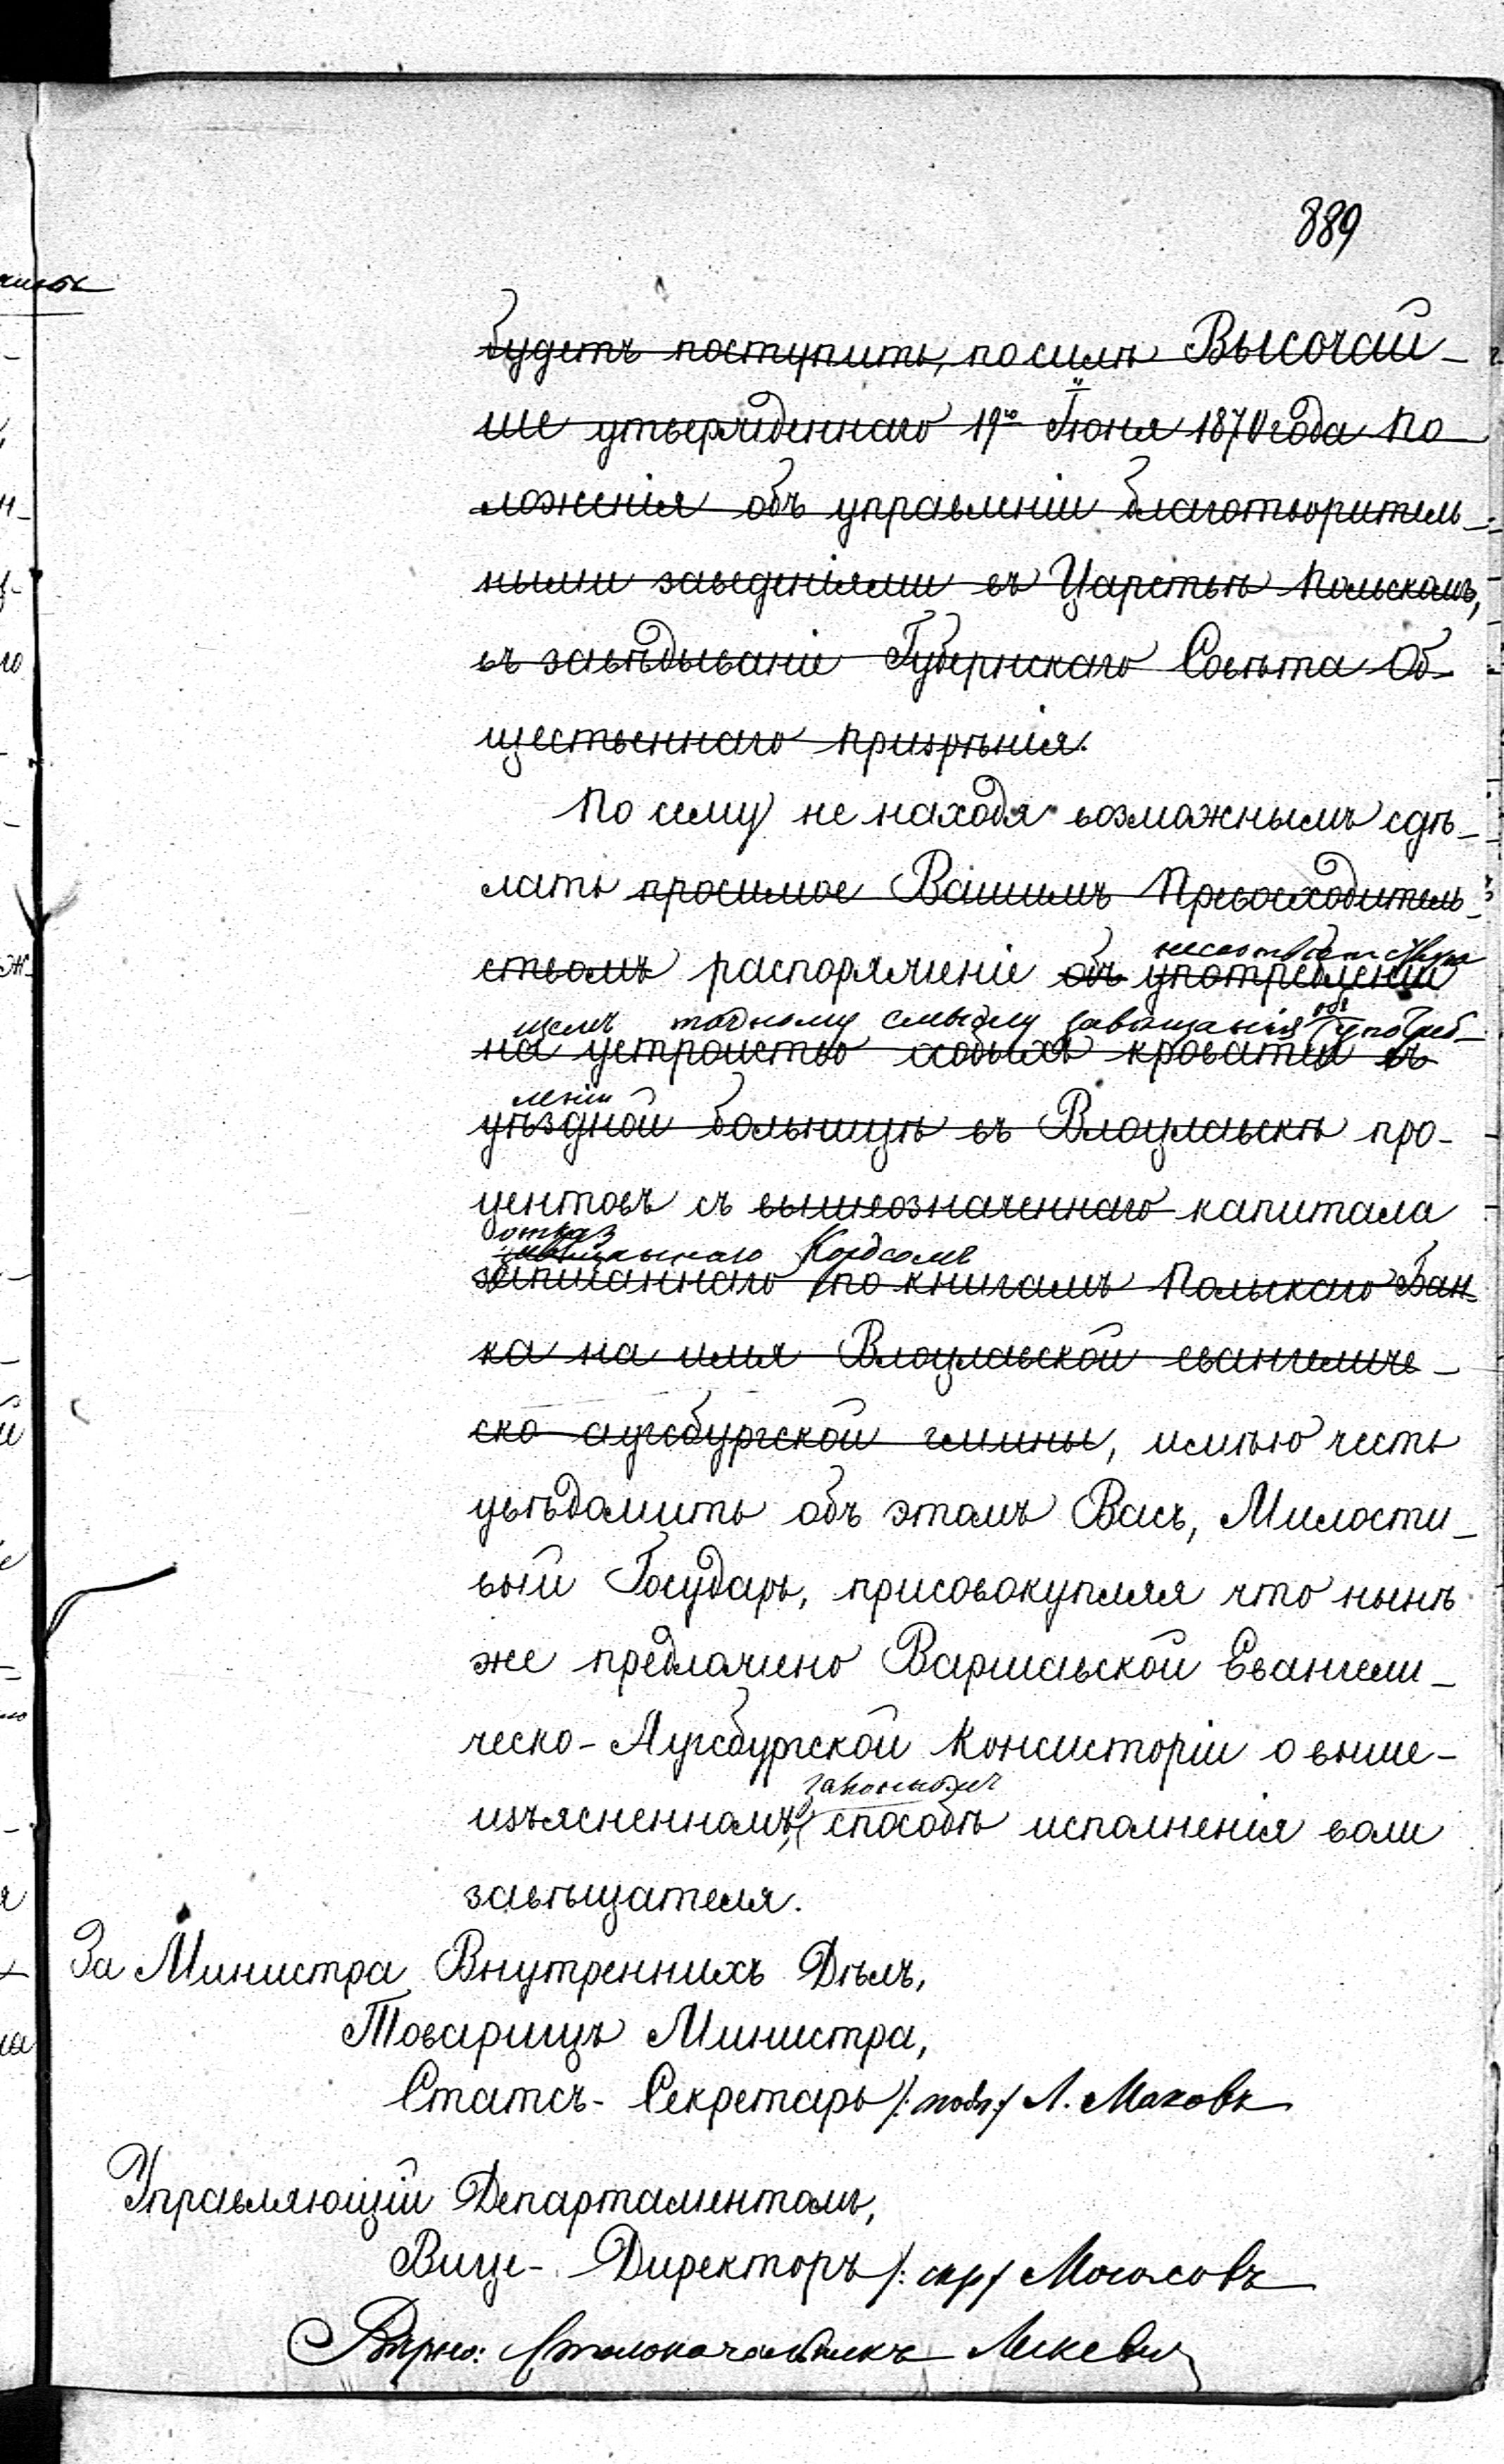 889
будетъ поступить, по силѣ Высочай-
ше утвержденнаго 19го Іюня 1870 года По
ложенія объ управленіи благотворитель-
ными заведеніями въ Царствѣ Польскомъ,
въ завѣдываніе Губернскаго Совѣта Об-
щественнаго Призрѣнія.
По сему не находя возможнымъ сдѣ-
лать просимое Вашимъ Превосходитель-
несоотвѣтствую
ствомъ распоряженіе объ употребленіи
щемъ точному смыслу завѣщанія объ употреб-
на устройство особыхъ кроватей въ
леніи
уѣздной больницѣ въ Влоцлавскѣ про-
центовъ съ вышеозначеннаго капитала
отказ
аннаго Кордсомъ
записаннаго по книгамъ Польскаго Бан-
ка на имя Влоцлавской евангеличе-
ско аугсбургской гмины, имѣю честь
увѣдомить объ этомъ Васъ, Милости-
вый Государь, присовокупляя что нынѣ
же предложено Варшавской Евангели-
ческо-Аугсбургской Консисторіи о выше-
законномъ
изъясненномъ, способѣ исполненія воли
завѣщателя.
За Министра Внутреннихъ Дѣлъ,
Товарищъ Министра,
Статсъ-Секретарь /: подп :/ Л. Маковъ
Управляющій Департаментомъ,
Вице-Директоръ /: скр / Мосоловъ
Вѣрно: Столоначальникъ